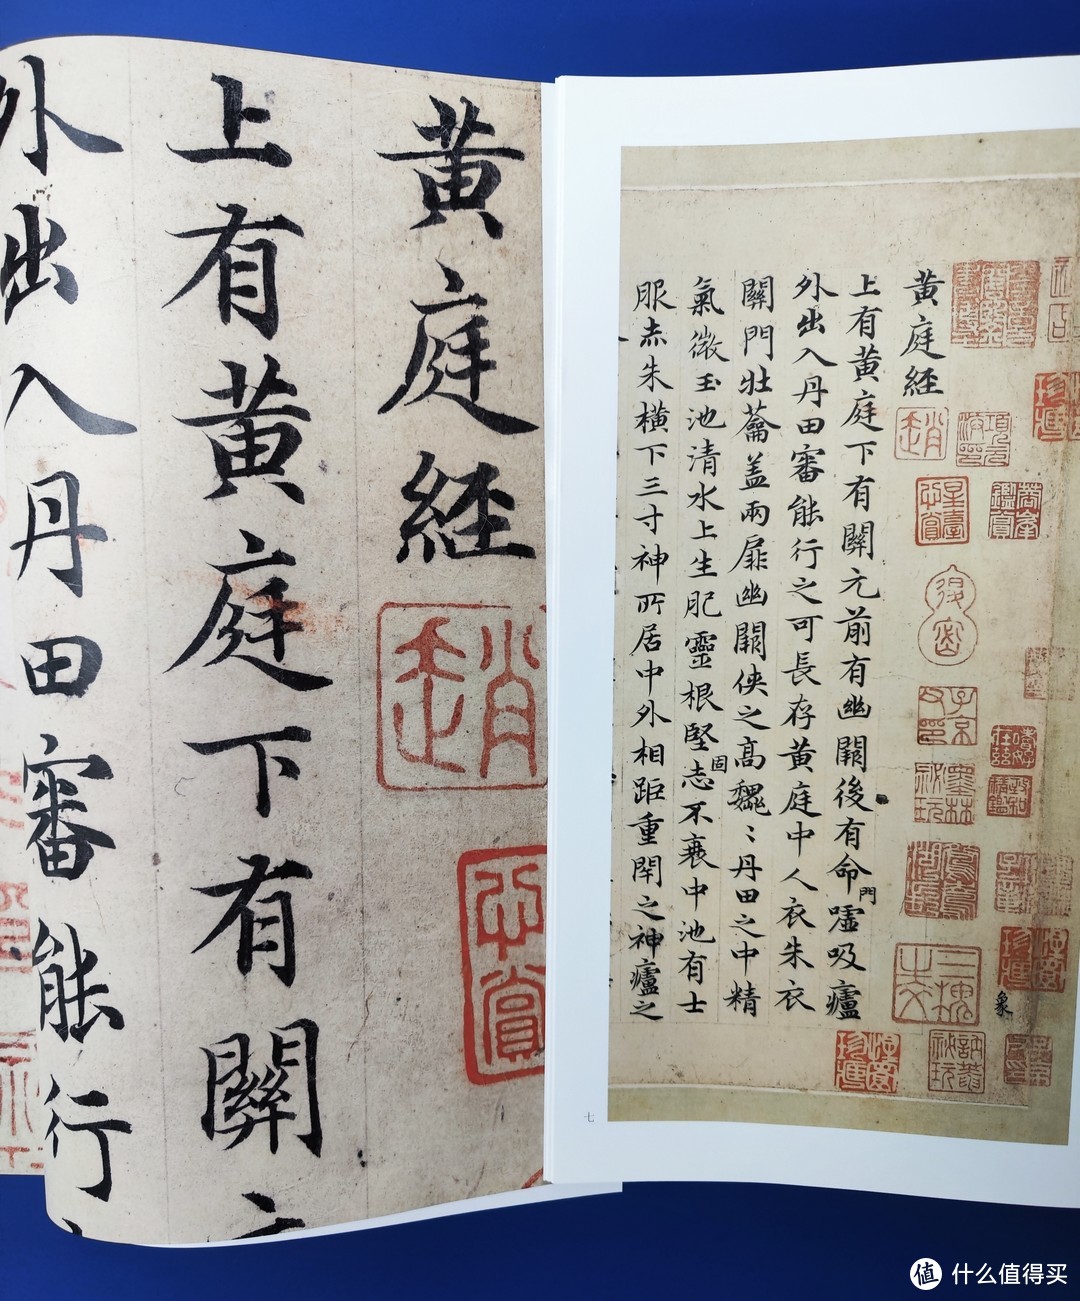 黄庭経
上有黄庭下有關元前有幽闕後有命門嘘吸廬
外出入丹田審能行之可長存黄庭中人衣朱衣
關門壮蘥盖兩扉幽闕侠之高巍〻丹田之中精
氣微玉池清水上生肥靈根堅固志不衰中池有士
服赤朱橫下三寸神所居中外相距重閉之神廬之
七
黄庭経
趙
心賞
上有黄庭下有關
外出入丹田審能行
值 什么值得买